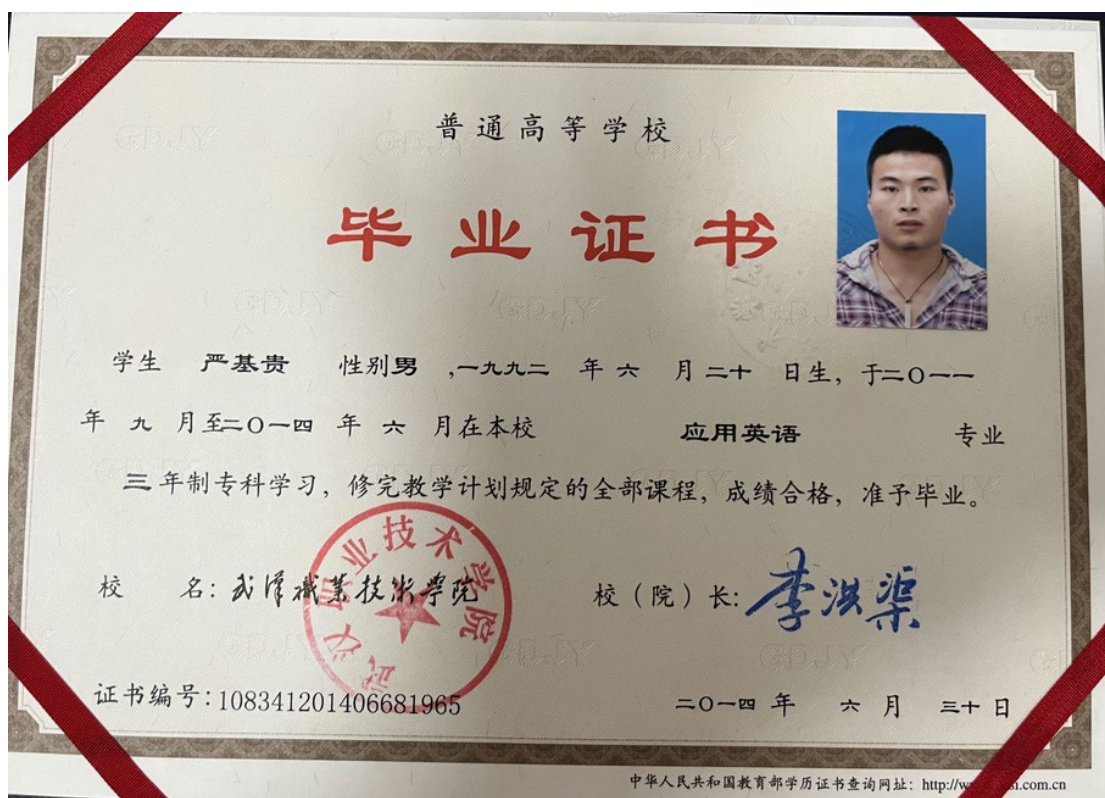 普通高等学校
毕业证书
学生 严基贵 性别男 ,一九九二 年 六 月 二十 日生, 于二〇一一
年 九 月至二〇一四 年 六 月在本校 应用英语 专业
三 年制专科学习, 修完教学计划规定的全部课程, 成绩合格, 准予毕业。
校 名: 武汉職業技術學院
武汉职业技术学院
校(院)长: 李洪渠
证书编号: 108341201406681965
二〇一四 年 六 月 三十 日
中华人民共和国教育部学历证书查询网址: http://w
.com.cn